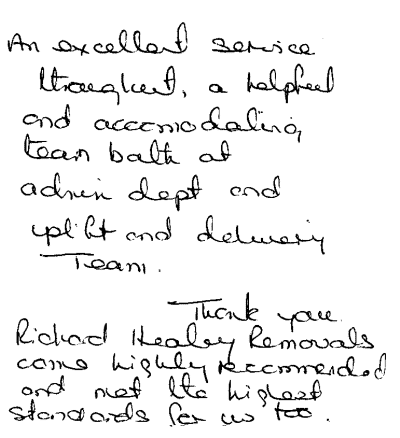 An excellent service
throughout, a helpful
and accomodating
team both at
admin dept and
uplift and delivery
Team.
Thank you.
Richard Healey Removals
came highly recommended
and met the highest
standards for us too.